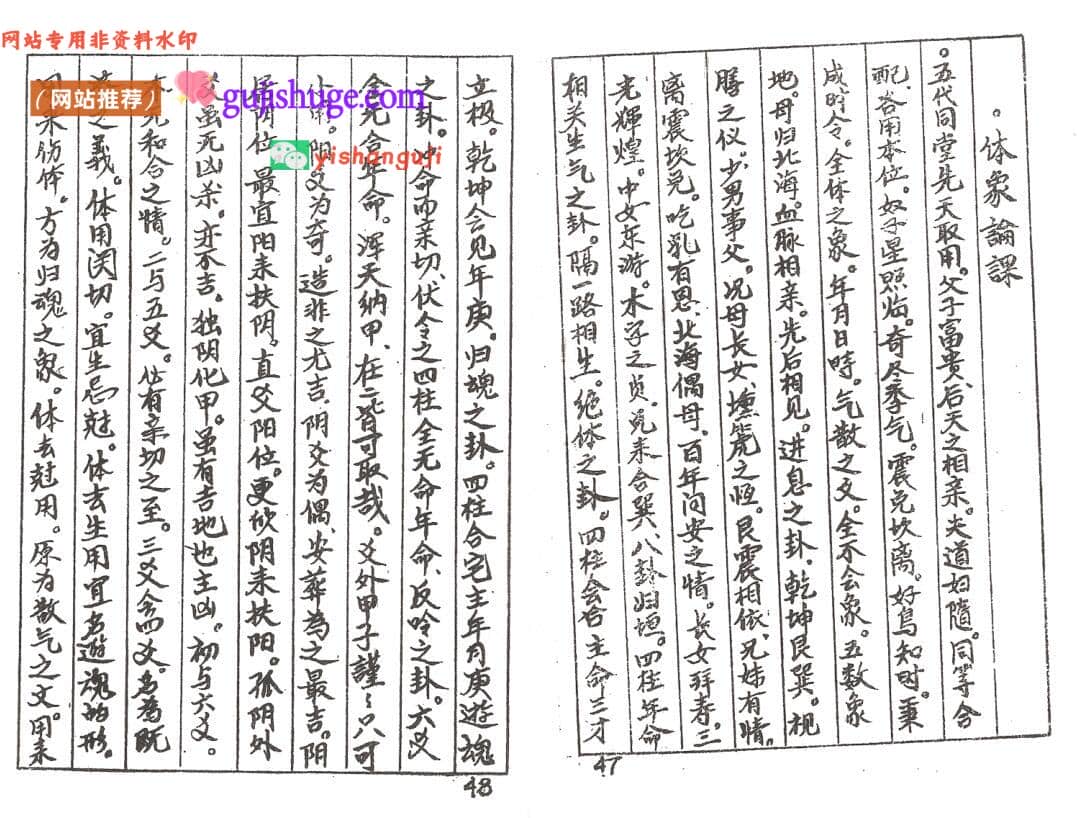 网站专用非资料水印
(网站推荐)
gujishuge.com
yishanguji
。体象論課
。五代同堂先天取用。父子富贵、后天之相亲。夫道妇隨。同等合
配、各用本位。奴子星照临。奇冬季气。震兑坎离。好鸟知时。秉
成时令。全体之象。年月日時。气散之文。全不会象。五数象
地。母归北海。血脉相亲。先后相见。进息之卦、乾坤艮巽。视
膳之仪。少男事父。况母长女、壎篪之恆。艮震相依、兄妹有情。
离震坎兑。吃乳有恩、北海偶母、百年问安之情。长女拜寿。三
光輝煌。中女东游。木字之贞。兑来合巽、八卦归垣。四柱年命
相关生气之卦。隔一路相生。绝体之卦。四柱会合主命三才
47
立极。乾坤会见年庚。归魂之卦。四柱合宅主年月庚遊魂
之卦。冲命而亲切、伏令之四柱全无命年命、反吟之卦。六爻
全无合年命。浑天纳甲、在三皆可取哉。爻外甲子謹々只可
小用。阴爻为奇。造非之尤吉、阴爻为偶、安葬為之最吉。阴
居阴位、最宜阳来扶阴。直爻阳位。更欣阴来扶阳。孤阴外
爻虽无凶杀。亦不吉。独阴化甲。虽有吉地也主凶。初与六爻。
元和合之情。二与五爻。佔有亲切之至。三爻含四爻。名為既
之義。体用関切。宜生忌尅。体去生用宜名遊魂的形。
用来伤体。方为归魂之象。体去尅用。原为散气之文。用来
48